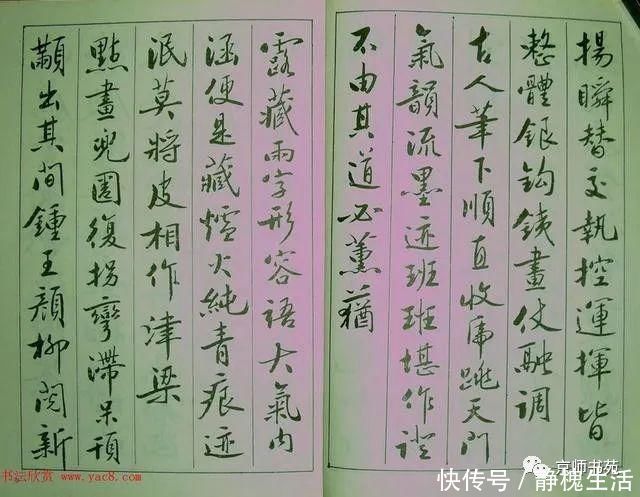 揚瞬替交執控運揮皆
整體銀鈎鐵畫仗融調
古人筆下順直收虎跳天門
氣韻流墨迹班班堪作證
不由其道必薰猶
露藏兩字形容語大氣內
涵便是藏爐火純青痕迹
泯莫將皮相作津梁
點畫兜圈復拐彎滯呆頓
出其間鍾王顏柳閱新
书坛欣赏 www.yac8.com
京师书苑
快传号/静槐生活